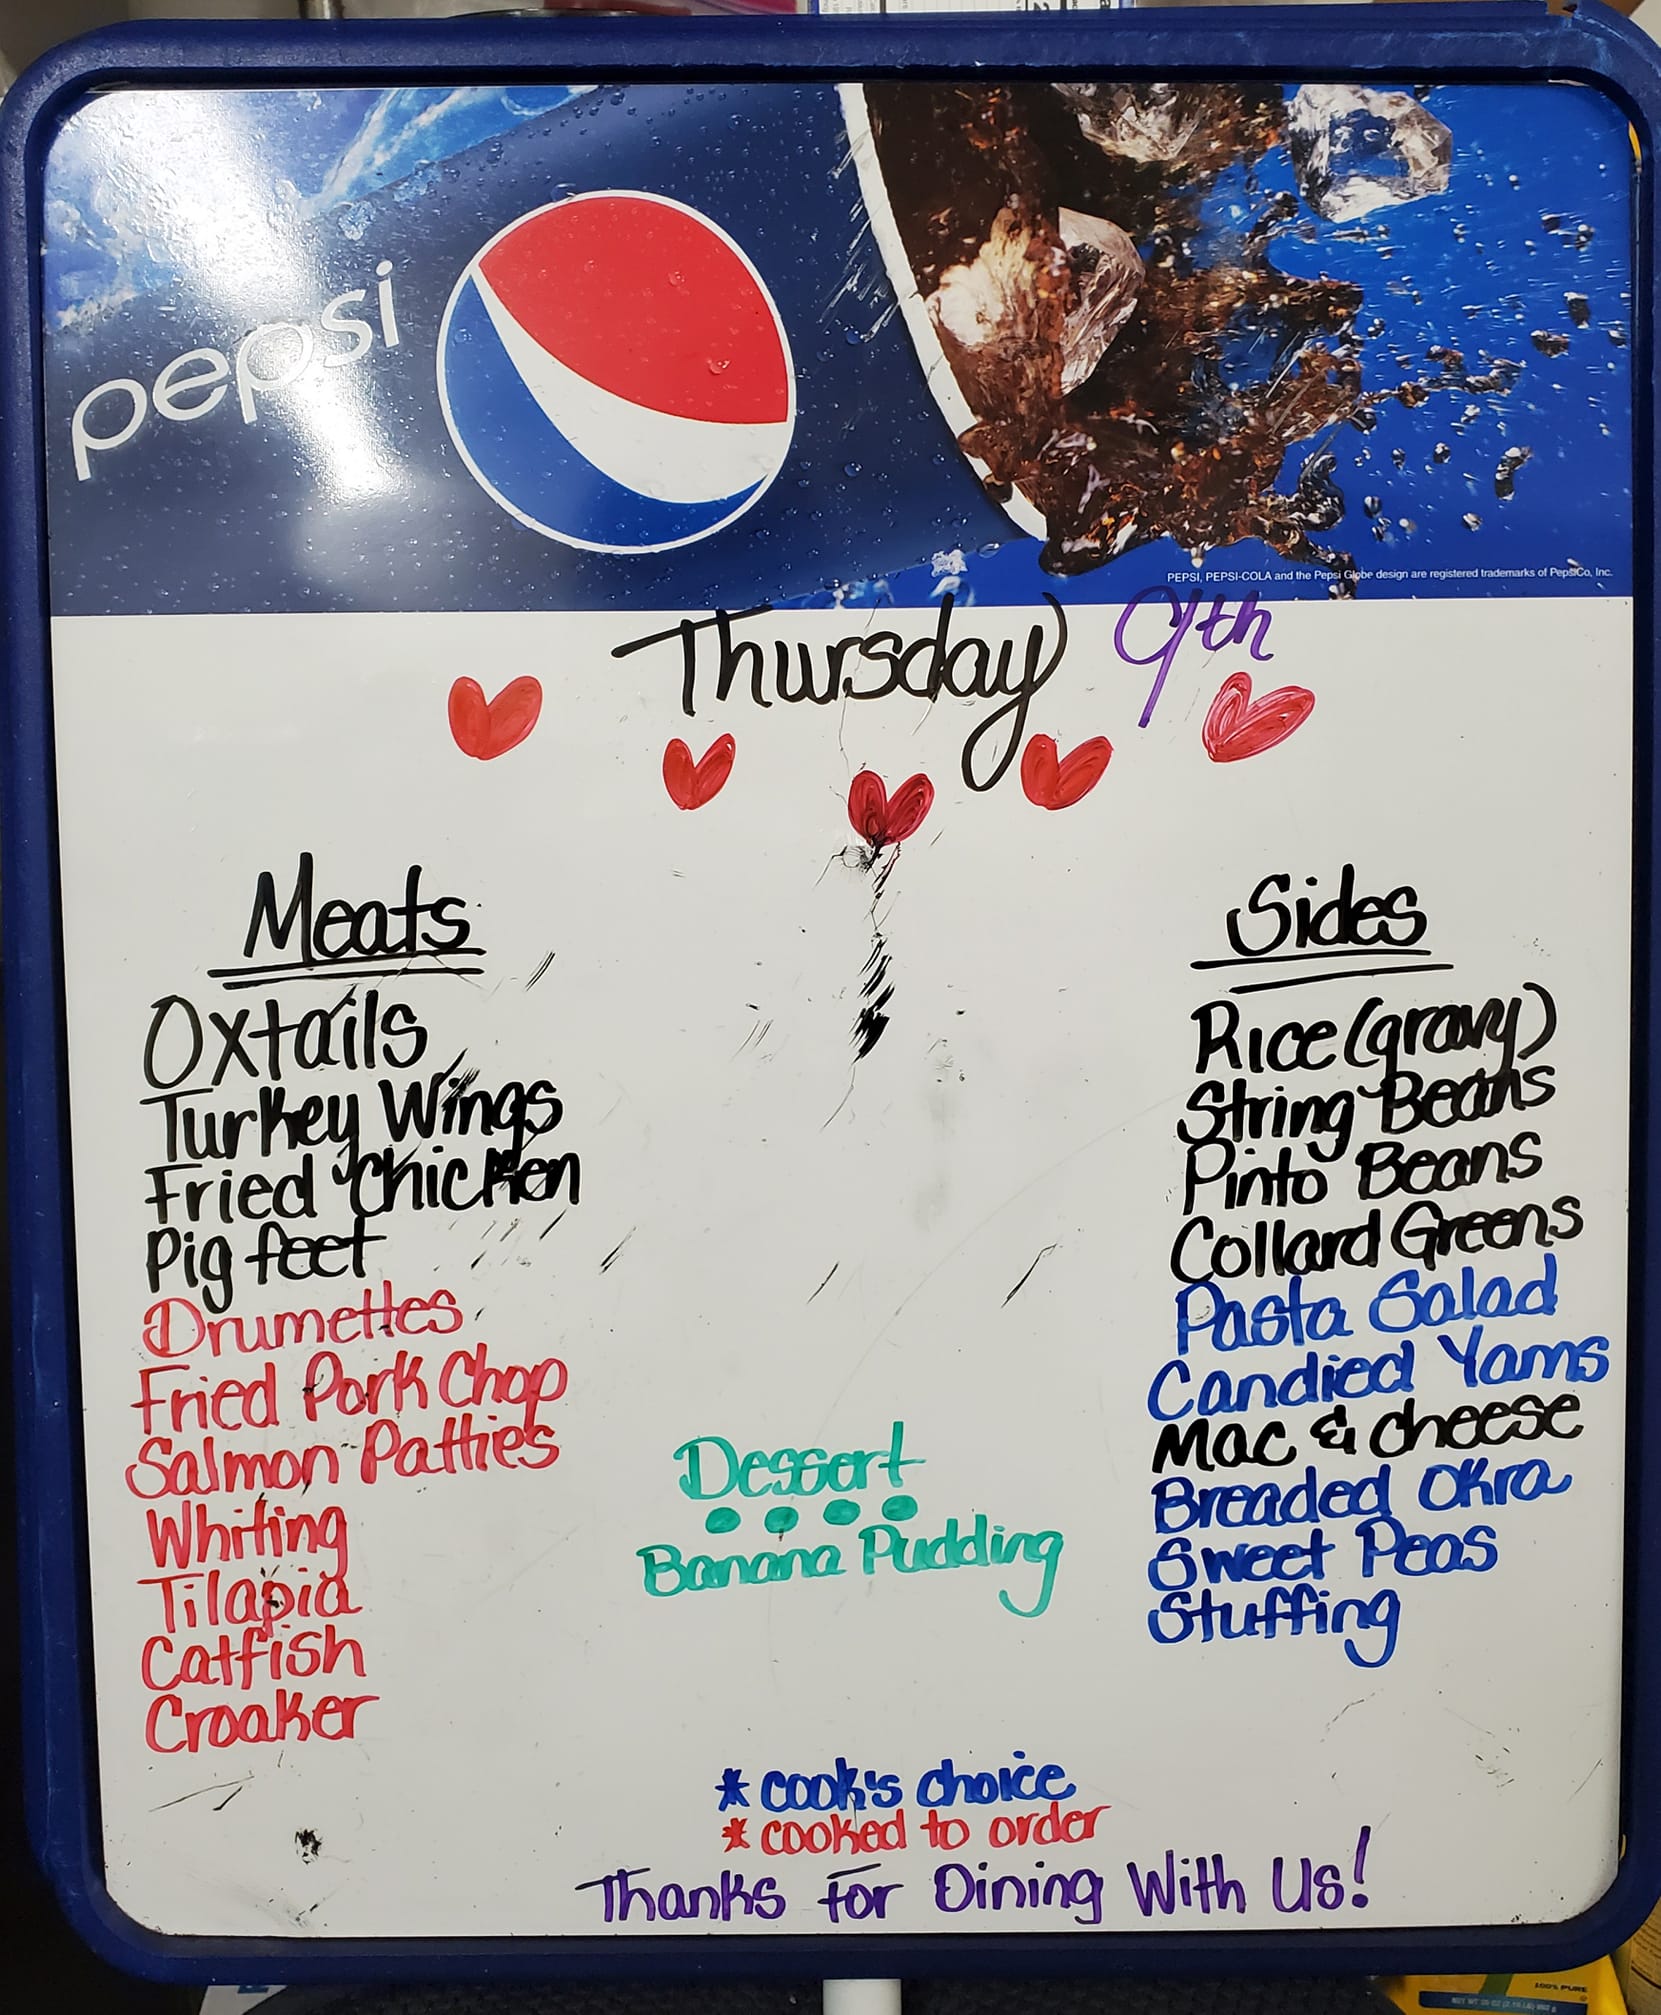 pepsi
PEPSI, PEPSI-COLA and the Pepsi Globe design are registered trademarks of PepsiCo, Inc.
Thursday 9th
Meats
Oxtails
Turkey Wings
Fried Chicken
Pig feet
Drumettes
Fried Pork Chop
Salmon Patties
Whiting
Tilapia
Catfish
Croaker
Dessert
Banana Pudding
Sides
Rice (gravy)
String Beans
Pinto Beans
Collard Greens
Pasta Salad
Candied Yams
Mac & cheese
Breaded Okra
Sweet Peas
Stuffing
* cook's choice
* cooked to order
Thanks For Dining With Us!
100% PURE